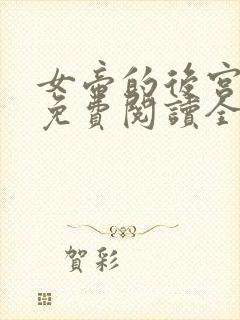 女帝的後宮
免費閱讀全
賀彩